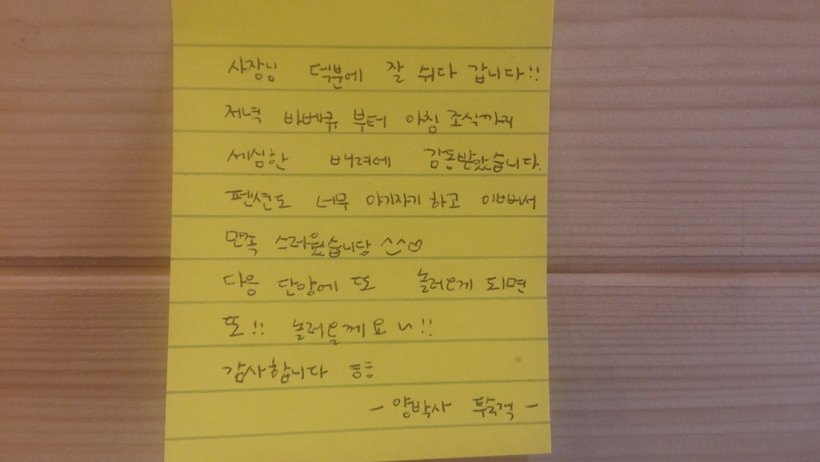 사장님 덕분에 잘 쉬다 갑니다!!
저녁 바베큐 부터 아침 조식까지
세심한 배려에 감동받았습니다.
펜션도 너무 아기자기 하고 이뻐서
만족 스러웠습니당 ^^♡
다음 단양에 또 놀러오게 되면
또!! 놀러올께요~!!
감사합니다 ㅎㅎ
- 양박사 투숙객 -